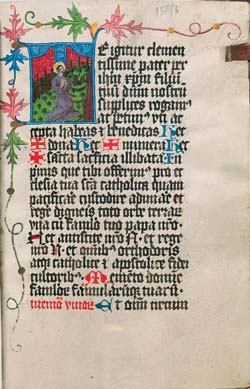 T E igitur clemen
tissime pater per
ihm xpm filiu
tuu dnm nostru
supplices rogam9
ac petim9 uti ac
cepta habeas et benedicas Hec
✠ dona Hec ✠ munera Hec
✠ sacta sacrificia illibata In
primis que tibi offerim9 pro ec
clesia tua scta catholica quam
pacificare custodire adunare et
regere digneris toto orbe terraru
una cu famulo tuo papa nro
N et antistite nro N et rege
nro N et omibus orthodoxis
atq catholice et apostolice fidei
cultoribus Memento domine
famulor famularumq tuaru
memoria vivorum Et omium circum